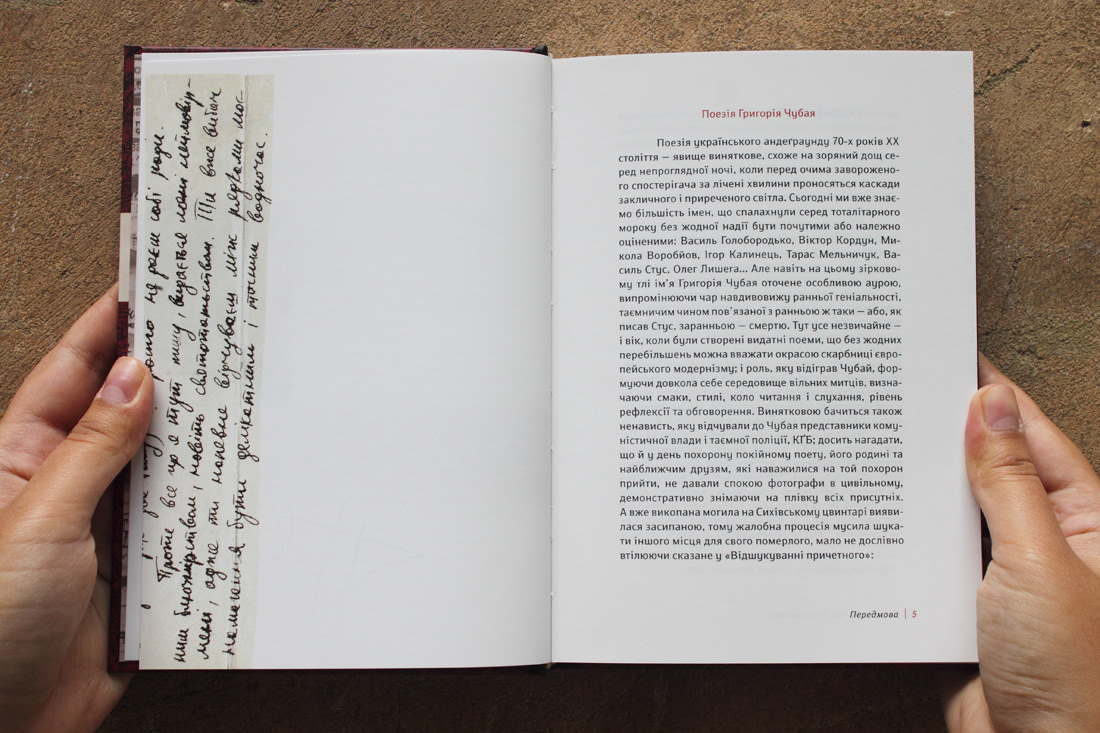 просто не даєш собі ради.
Проте все що я тут пишу, видається мені неймовір-
ним блюзнірством, навіть святотатством. Ти вже вибач
мені, адже ти напевне відчуваєш між рядками моє
намагання бути делікатним і точним водночас.
Поезія Григорія Чубая
Поезія українського андеґраунду 70-х років ХХ
століття — явище виняткове, схоже на зоряний дощ се-
ред непроглядної ночі, коли перед очима завороженo-
го спостерігача за лічені хвилини проносяться каскади
закличного і приреченого світла. Сьогодні ми вже знає-
мо більшість імен, що спалахнули серед тоталітарного
мороку без жодної надії бути почутими або належно
оціненими: Василь Голобородько, Віктор Кордун, Ми-
кола Воробйов, Ігор Калинець, Тарас Мельничук, Ва-
силь Стус, Олег Лишега... Але навіть на цьому зірково-
му тлі ім’я Григорія Чубая оточене особливою аурою,
випромінюючи чар навдивовижу ранньої геніальності,
таємничим чином пов’язаної з ранньою ж таки — або, як
писав Стус, заранньою — смертю. Тут усе незвичайне —
і вік, коли були створені видатні поеми, що без жодних
перебільшень можна вважати окрасою скарбниці євро-
пейського модернізму; і роль, яку відіграв Чубай, фор-
муючи довкола себе середовище вільних митців, визна-
чаючи смаки, стилі, коло читання і слухання, рівень
рефлексії та обговорення. Винятковою бачиться також
ненависть, яку відчували до Чубая представники кому-
ністичної влади і таємної поліції, КҐБ; досить нагадати,
що й у день похорону покійному поету, його родині та
найближчим друзям, які наважилися на той похорон
прийти, не давали спокою фотографи в цивільному,
демонстративно знімаючи на плівку всіх присутніх.
А вже викопана могила на Сихівському цвинтарі вияви-
лася засипаною, тому жалобна процесія мусила шука-
ти іншого місця для свого померлого, мало не дослівно
втілюючи сказане у «Відшукуванні причетного»:
Передмова | 5